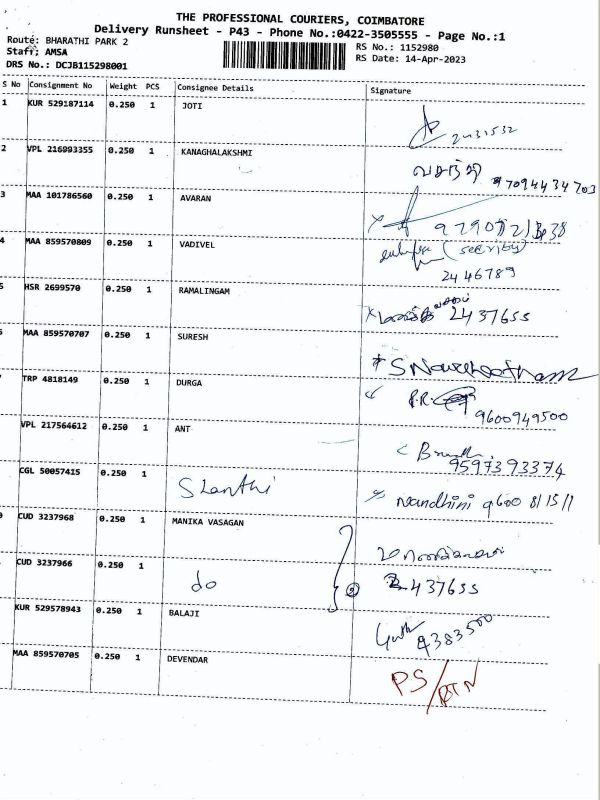 THE PROFESSIONAL COURIERS, COIMBATORE
Delivery Runsheet - P43 - Phone No.:0422-3505555 - Page No.:1
Route: BHARATHI PARK 2
Staff; AMSA
DRS No.: DCJB115298001
RS No.: 1152980
RS Date: 14-Apr-2023
S No Consignment No Weight PCS Consignee Details Signature
1 KUR 529187114 0.250 1 JOTI 2431532
2 VPL 216993355 0.250 1 KANAGHALAKSHMI வசந்தி 7094434703
3 MAA 101786560 0.250 1 AVARAN
4 MAA 859570809 0.250 1 VADIVEL (security)
2446789
5 HSR 2699570 0.250 1 RAMALINGAM 2437655
MAA 859570707 0.250 1 SURESH
TRP 4818149 0.250 1 DURGA P.R.
9600949500
VPL 217564612 0.250 1 ANT
9597393374
CGL 50057415 0.250 1 Shanthi Nandhini 9600 81511
CUD 3237968 0.250 1 MANIKA VASAGAN
CUD 3237966 0.250 1 do 2 2437655
KUR 529578943 0.250 1 BALAJI 4383500
MAA 859570705 0.250 1 DEVENDAR PS/RTN